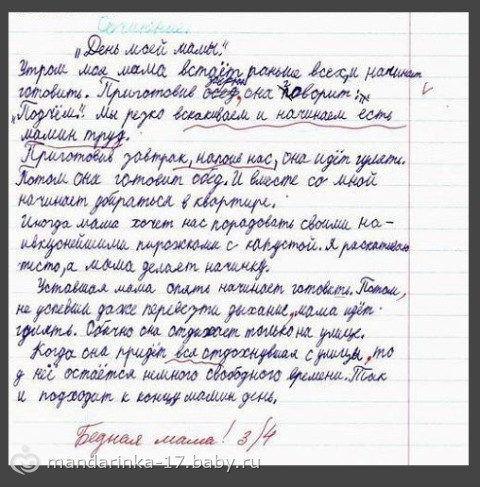 Сочинение.
„День моей мамы."
Утром моя мама встаёт раньше всех, и начинает
готовить. Приготовив обед, она говорит:
„Подъём". Мы резко вскакиваем и начинаем есть
мамин труд.
Приготовив завтрак, напоив нас, она идёт гулять.
Потом она готовит обед. И вместе со мной
начинает добраться в квартире.
Иногда мама хочет нас порадовать своими на-
ивкуснейшими пирожками с капустой. Я раскатываю
тесто, а мама делает начинку.
Уставшая мама опять начинает готовить. Потом,
не успевши даже перевезти дыхание, мама идёт
гулять. Обычно она отдыхает только на улице.
Когда она придёт вся отдохнувшая с улицы, то
у неё остаётся немного свободного времени. Так
и подходит к концу мамин день.
Бедная мама! 3/4
mandarinka-17.baby.ru